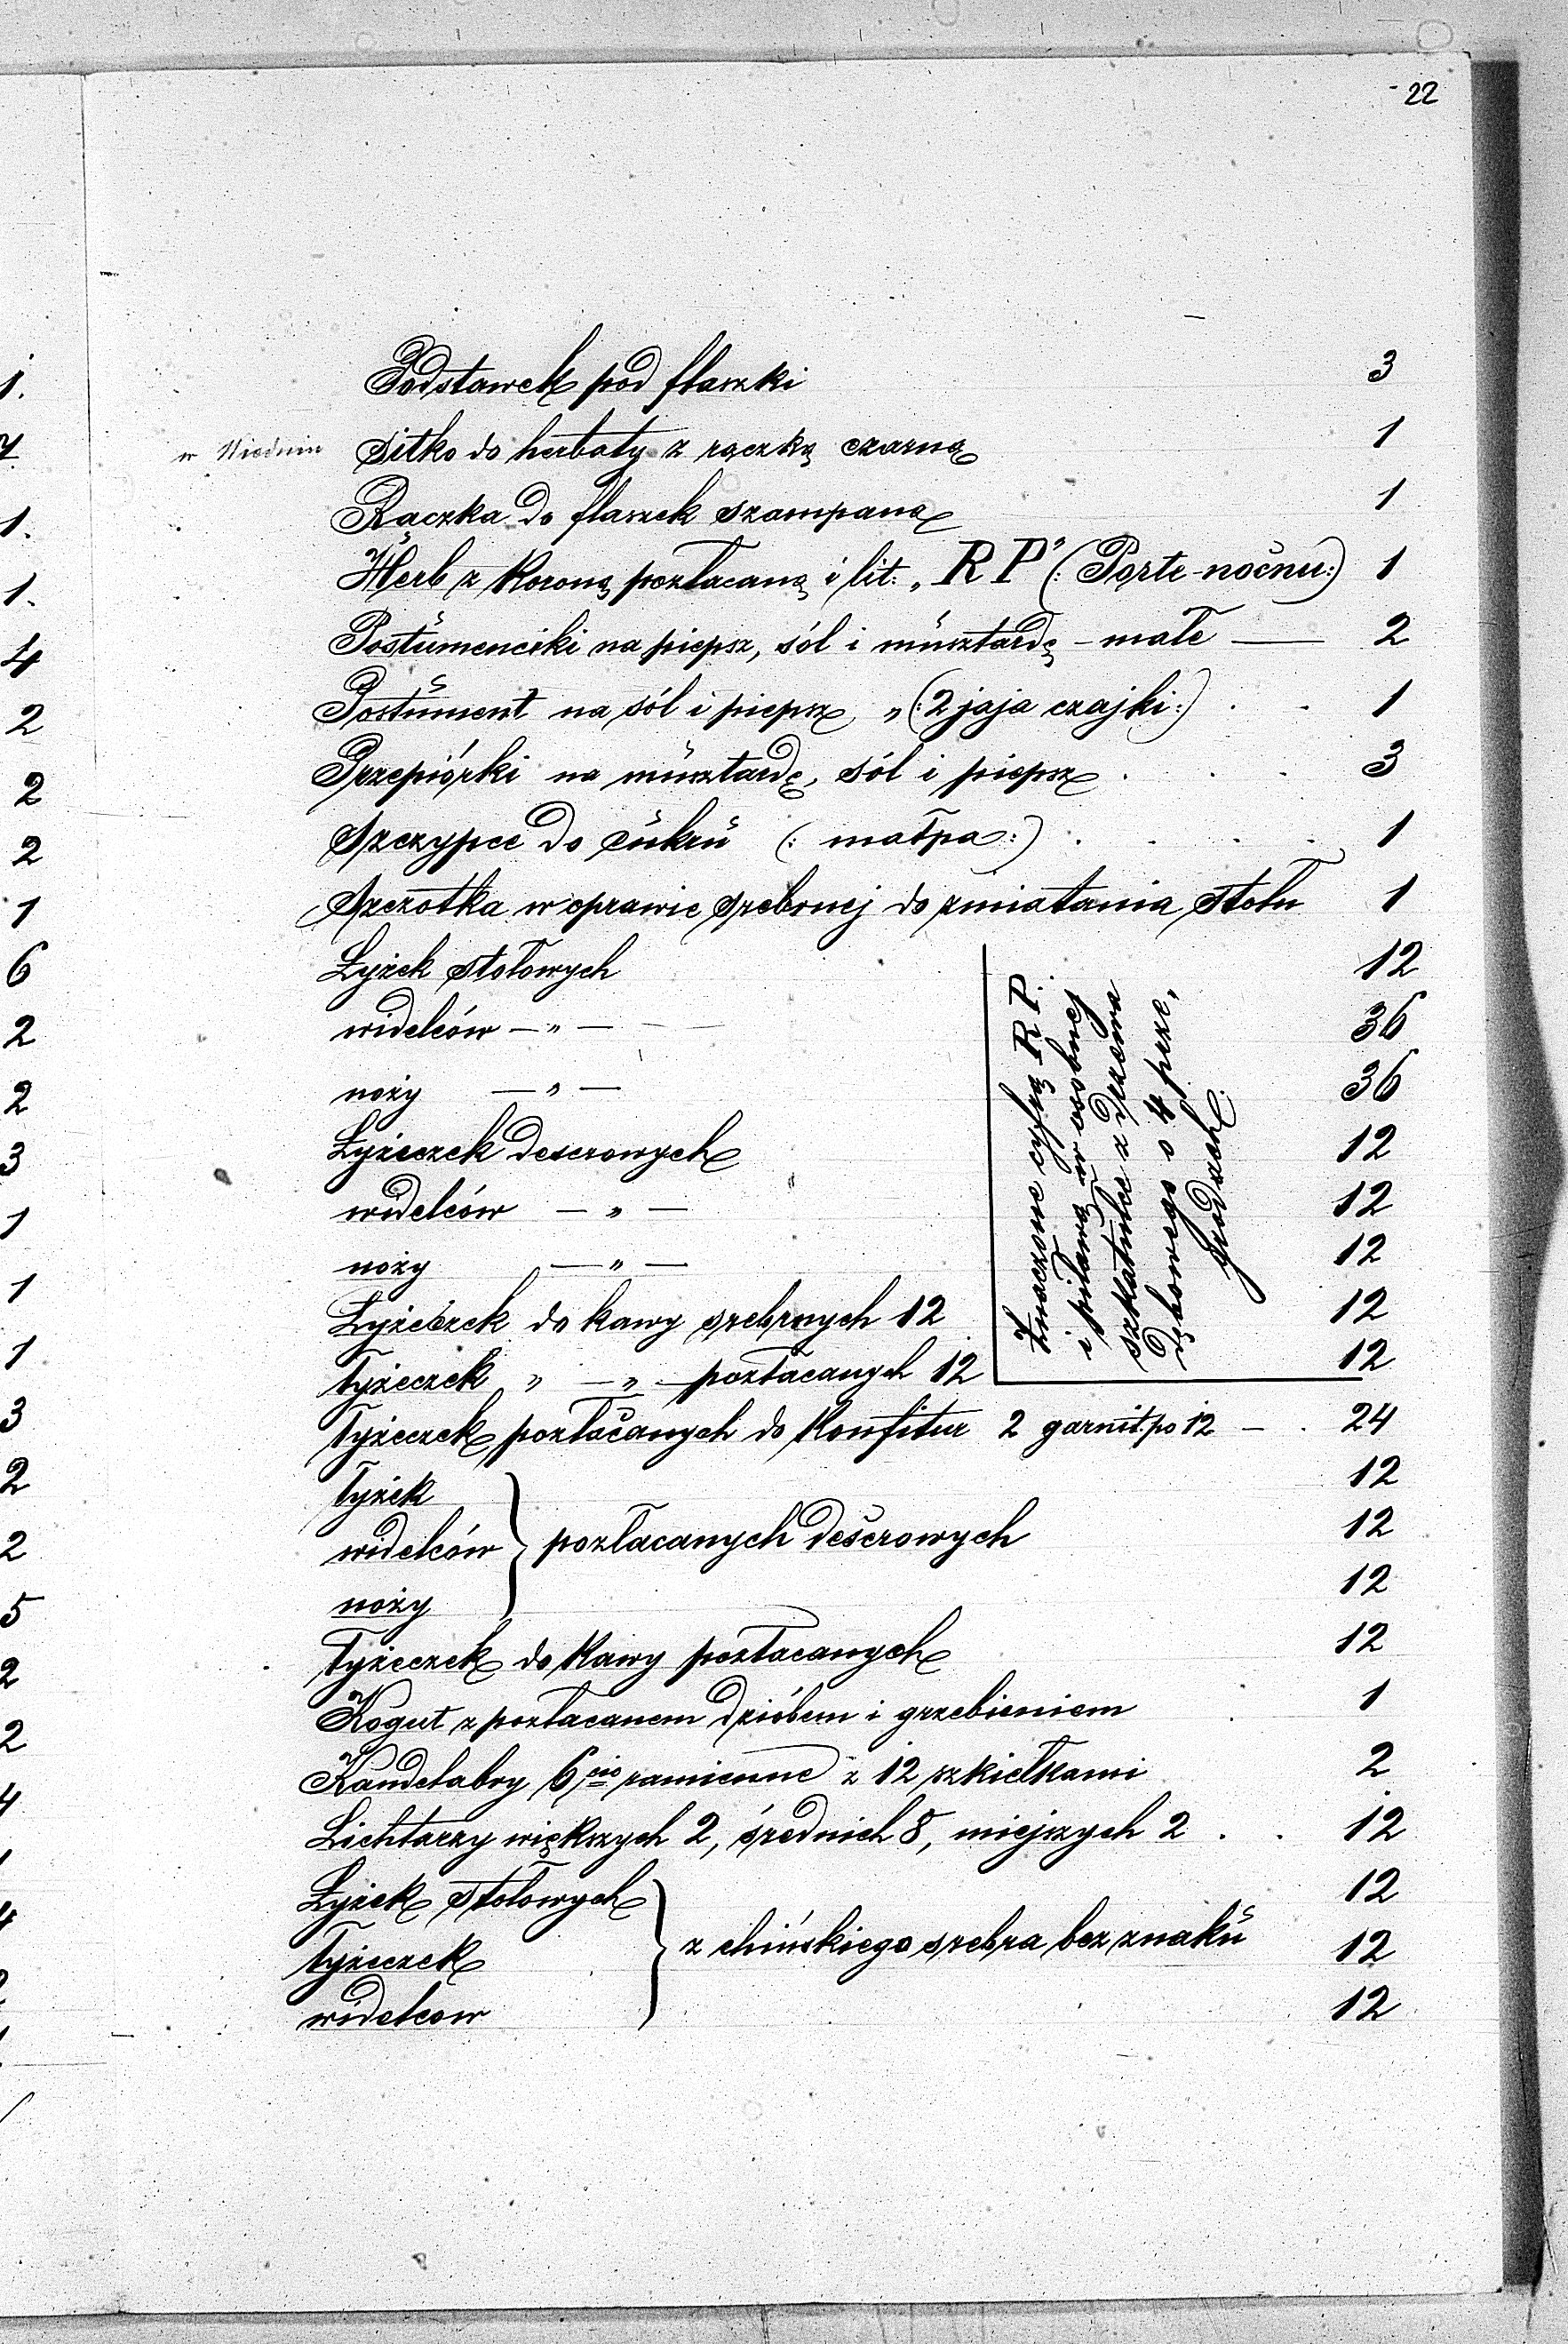 22
Podstawek pod flaszki 3
w Wiedniu Sitko do herbaty z rączką czarną 1
Rączka do flaszek szampana 1
Herb z koroną pozłacaną i lit: „RP" (: Porte-nocnu:) 1
Postumenciki na pieprz, sól i musztardę – małe — 2
Postument na sól i pieprz „(: 2 jaja czajki :) . . 1
Przepiórki na musztardę, sól i pieprz . . . 3
Szczypce do cukru (: małpa :) . . . . 1
Szczotka w oprawie srebrnej do zmiatania stołu 1
Łyżek stołowych 12
widelców — „ — 36
noży — „ — 36
Łyżeczek deserowych 12
widelców — „ — 12
noży — „ — 12
Łyżeczek do kawy srebrnych 12 12
Łyżeczek „ — „ — pozłacanych 12 12
Znaczone cyfrą R P.
i pilawą w osobnej
szkatułce z drzewa
dębowego o 4 prze,
grodach.
Łyżeczek pozłacanych do konfitur 2 garnit. po 12 — . 24
Łyżek 12
widelców } pozłacanych deserowych 12
noży 12
Łyżeczek do kawy pozłacanych 12
Kogut z pozłacanem dzióbem i grzebieniem 1
Kandelabry 6cio ramienne z 12 szkiełkami 2
Lichtarzy większych 2, średnich 8, miejszych 2 . . 12
Łyżek stołowych 12
Łyżeczek } z chińskiego srebra bez znaku 12
widelcow 12
1.
7
1.
1.
4
2
2
2
1
6
2
2
3
1
1
1
3
2
2
5
2
2
4
4